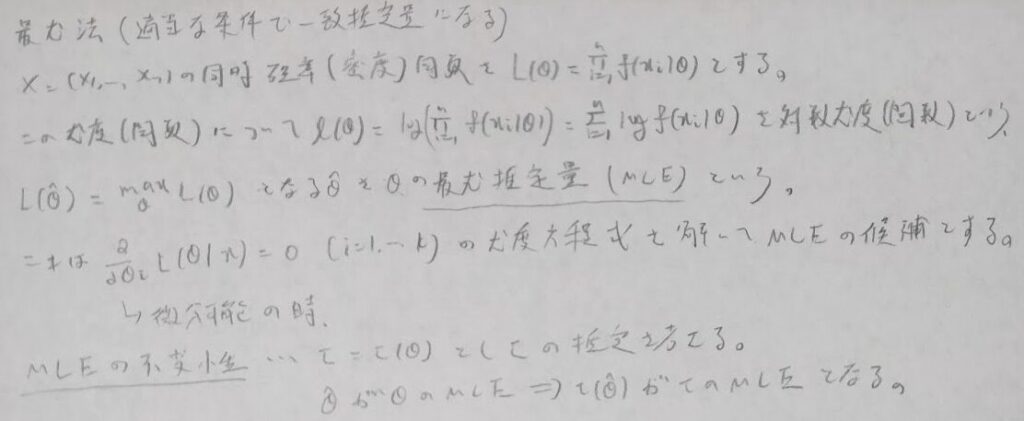 最尤法 (適当な条件で一致推定量になる)
X = (X₁, …, Xₙ) の同時確率(密度)関数を L(θ) = ∏ᵢ₌₁ⁿ f(xᵢ|θ) とする。
この尤度(関数)について l(θ) = log(∏ᵢ₌₁ⁿ f(xᵢ|θ)) = ∑ᵢ₌₁ⁿ log f(xᵢ|θ) を対数尤度(関数)という。
L(θ̂) = max_θ L(θ) となる θ̂ を θ の最尤推定量 (MLE) という。
これは ∂/∂θᵢ L(θ|x) = 0 (i=1, … k) の尤度方程式を解いて MLE の候補とする。
↳ 微分可能の時.
MLE の不変性 … τ = τ(θ) として の推定を考える。
θ̂ が θ の MLE ⇒ τ(θ̂) が τ の MLE となる。